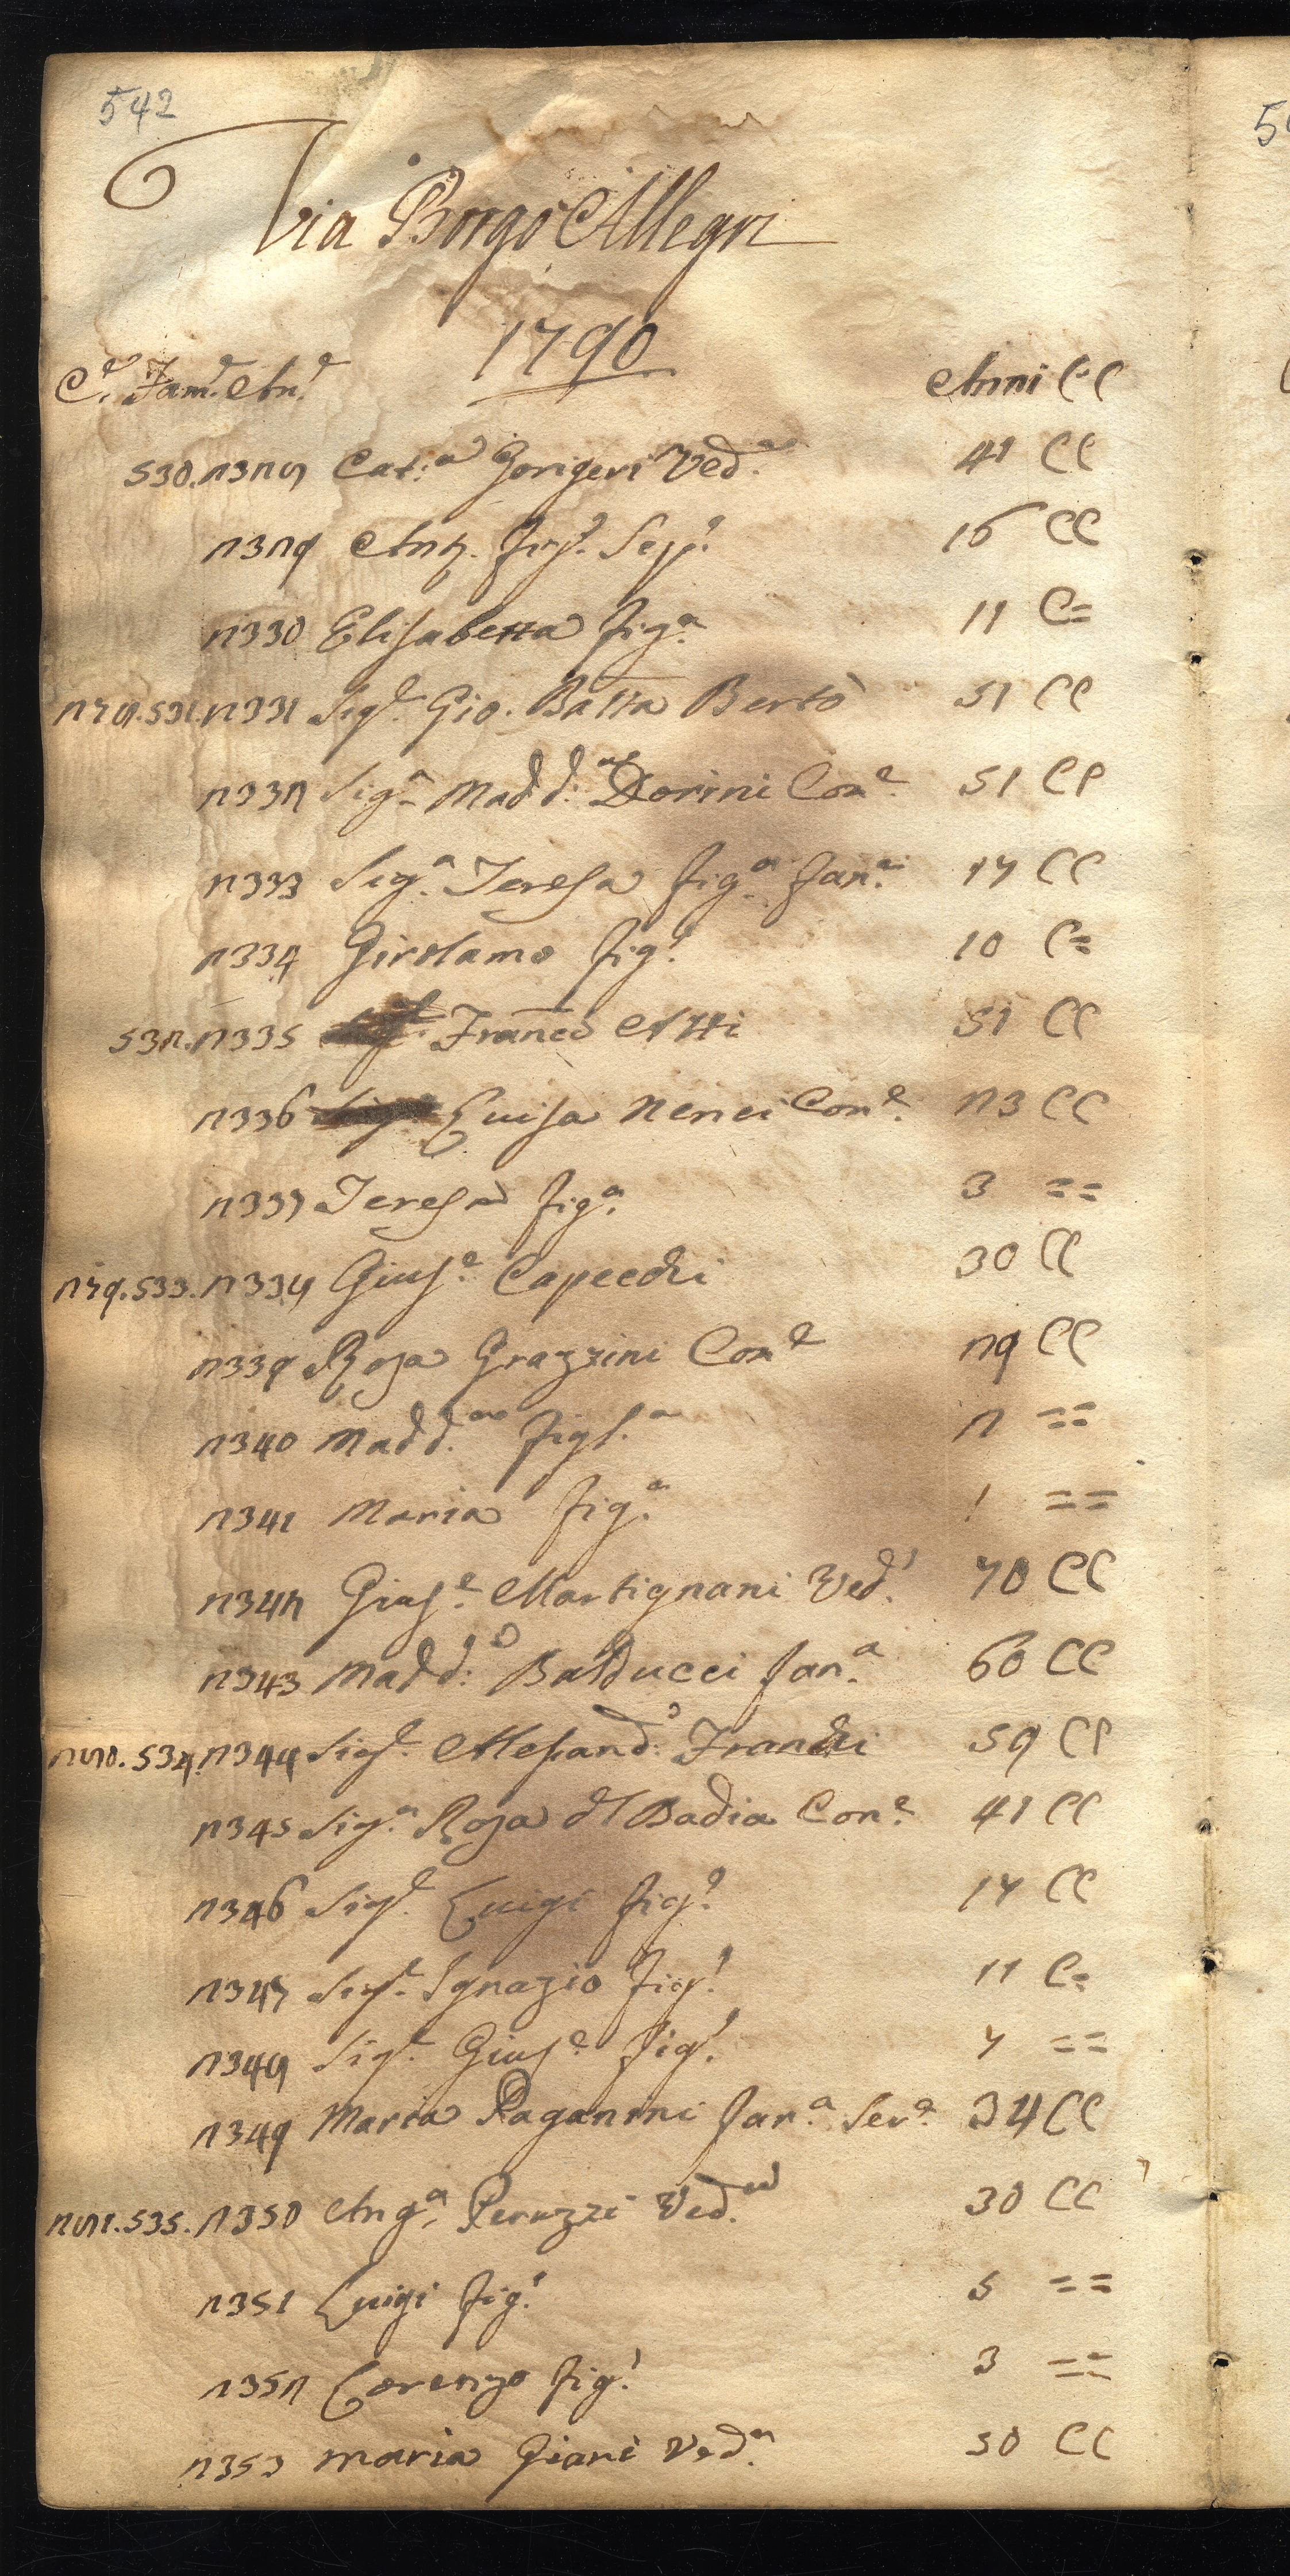 542
Via Borgo Allegri
1790
C.e Fam.e An.e Anni CC
530. 2328 Cat.a Gorigeri Ved.a 41 CC
2329 Ant. fig.o Sep.o 16 CC
2330 Elisabetta fig.a 11 C=
278. 531. 2331 Sig.e Gio. Batta Berto 51 CC
2332 Sig.a Madd.a Dorini Con.e 51 CC
2333 Sig.a Teresa fig.a fan.a 17 CC
2334 Girolamo fig.o 10 C=
532. 2335 Franco Atti 51 CC
2336 Luisa Nenci Con.e 23 CC
2337 Teresa fig.a 3 ==
279. 533. 2338 Gius.e Capecchi 30 CC
2339 Rosa Grazzini Con.e 29 CC
2340 Madd.a figl.a 2 ==
2341 Maria fig.a 1 ==
2342 Gius.e Martignani Ved.o 70 CC
2343 Madd.a Balducci fan.a 60 CC
280. 534. 2344 Sig.e Alesand.o Franchi 59 CC
2345 Sig.a Rosa d'l Badia Con.e 41 CC
2346 Sig.e Luigi fig.o 17 CC
2347 Sig.e Ignazio fig.o 11 C=
2348 Sig.e Gius.e fig.o 7 ==
2349 Maria Paganini fan.a Ser.a 34 CC
281. 535. 2350 Ang.a Peruzzi Ved.a 30 CC
2351 Luigi fig.o 5 ==
2352 Lorenzo fig.o 3 ==
2353 Maria Giani Ved.a 50 CC